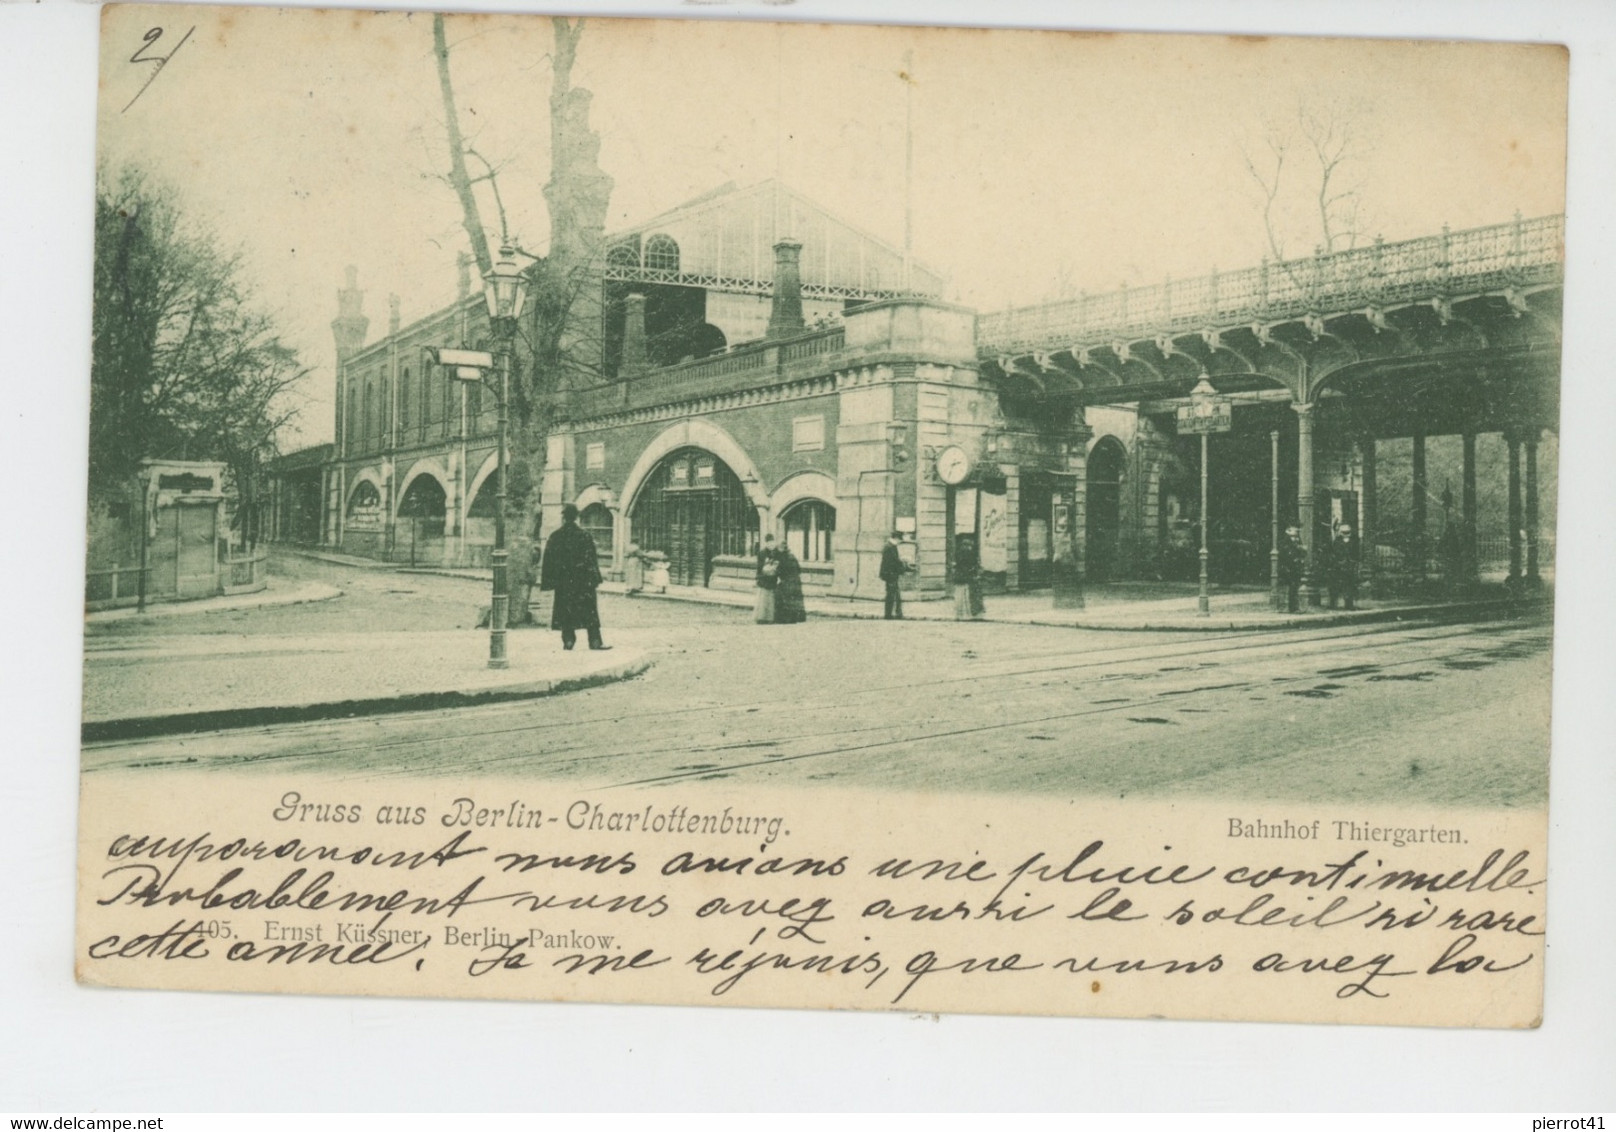 2/
Gruss aus Berlin-Charlottenburg.
Bahnhof Thiergarten.
auparavant nous avions une pluie continuelle.
Probablement vous avez aussi le soleil si rare
405. Ernst Küssner, Berlin-Pankow.
cette année. Je me réjouis, que vous avez la
delcampe.net
pierrot41